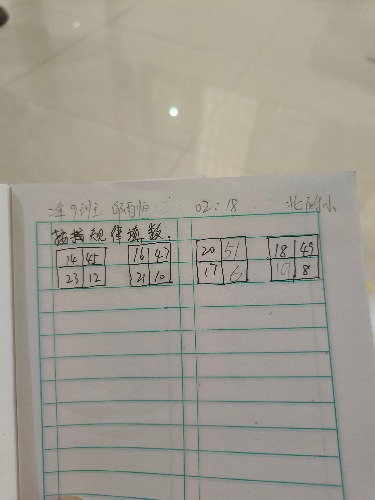 02:18
找规律填数.
14 45 16 47 20 51 18 49
23 12 21 10 17 6 19 8